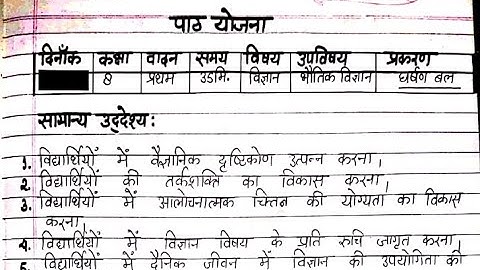 पाठ योजना
दिनाँक कक्षा वादन समय विषय उपविषय प्रकरण
8 प्रथम उडमि. विज्ञान भौतिक विज्ञान घर्षण बल
सामान्य उद्देश्य:
1. विद्यार्थियों में वैज्ञानिक दृष्टिकोण उत्पन्न करना।
2. विद्यार्थियों की तर्कशक्ति का विकास करना।
3. विद्यार्थियों में आलोचनात्मक चिन्तन की योग्यता का विकास
करना।
4. विद्यार्थियों में विज्ञान विषय के प्रति रुचि जागृत करना।
5. विद्यार्थियों में दैनिक जीवन में विज्ञान की उपयोगिता की